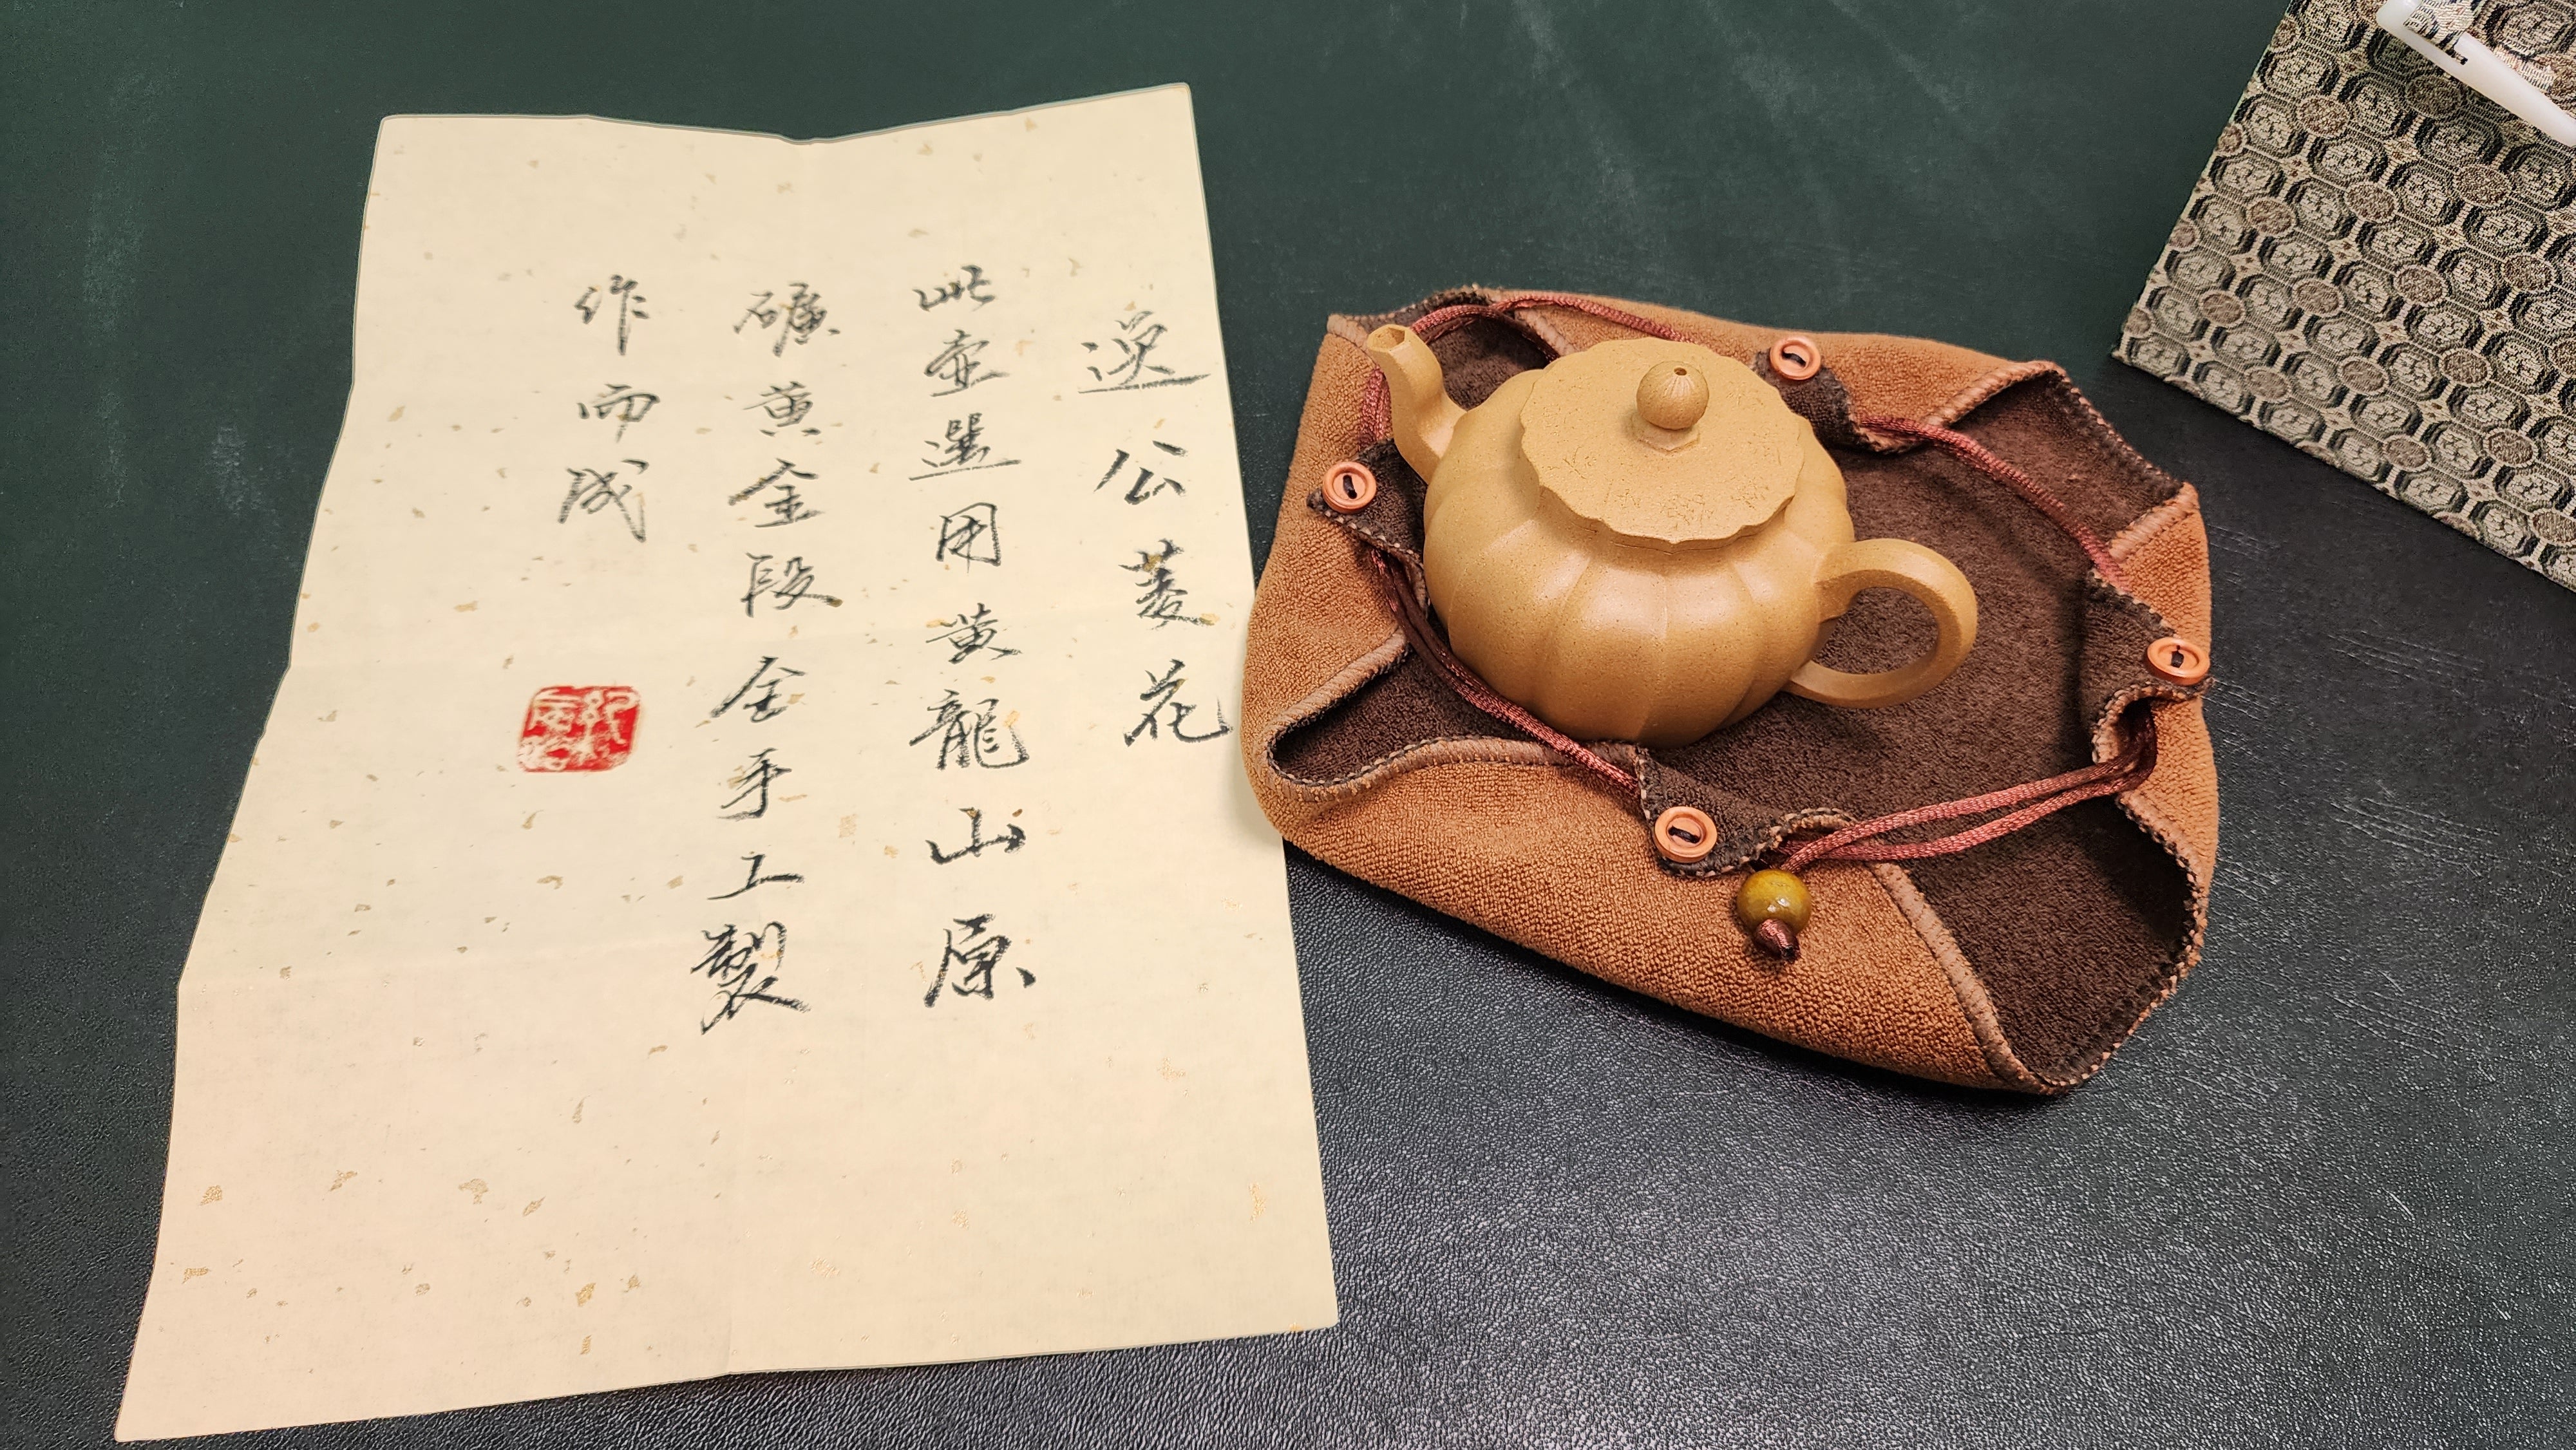 逸公菱花
此壷選用黄龍山原
礦黄金段全手工製
作而成